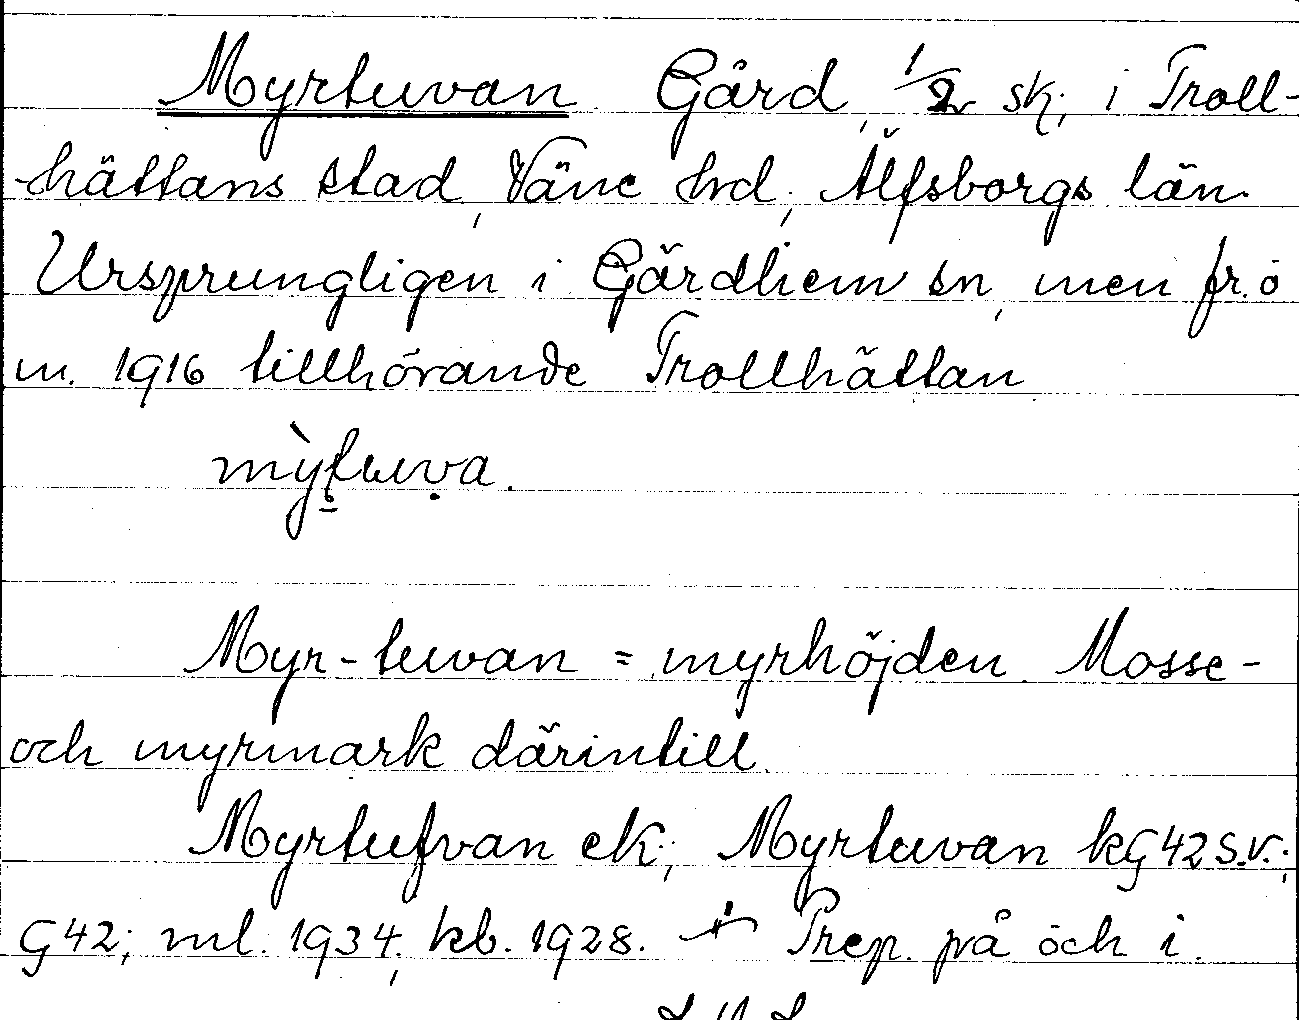 Myrtuvan. Gård, 1/2 sk, i Troll-
hättans stad, Väne hd, Älfsborgs län.
Ursprungligen i Gärdhem sn, men fr. o
m. 1916 tillhörande Trollhättan.
mỳtuva.
Myr-tuvan = myrhöjden. Mosse-
och myrmark därintill.
Myrtufvan ek; Myrtuvan kG42 S.V.;
G42; ml. 1934; kb. 1928. Prep. på och i.